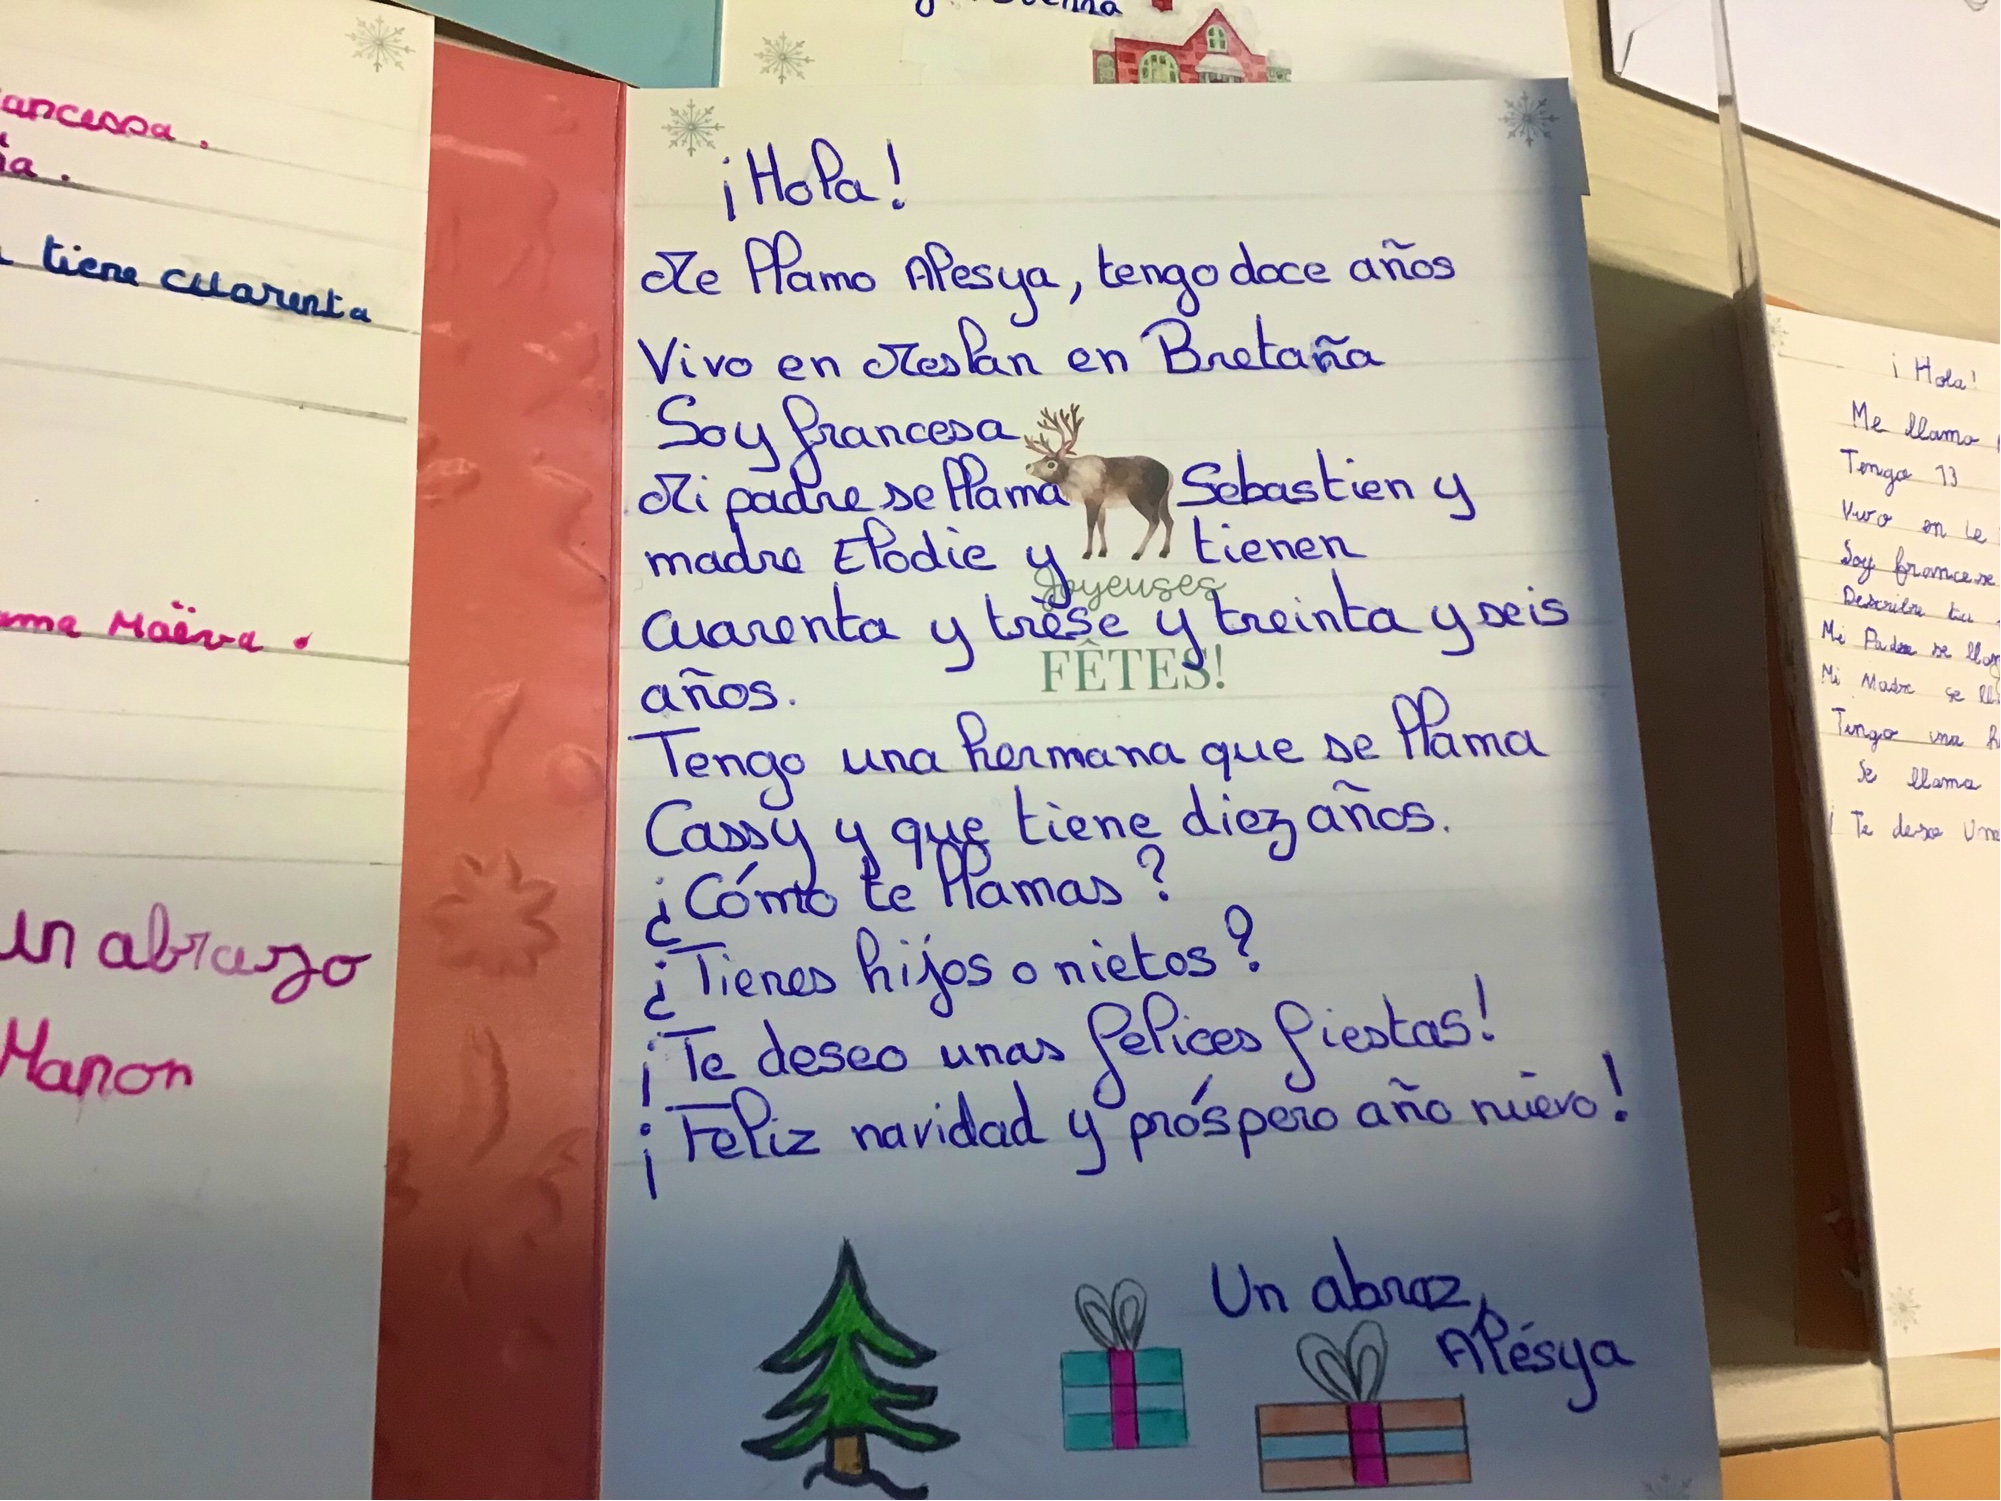 ancessa.
ia.
tiene cuarenta
ama Maëva.
un abrazo
Manon
¡Hola!
Me llamo Alesya, tengo doce años
Vivo en Meslan en Bretaña
Soy francesa
Mi padre se llama Sebastien y
madre Elodie y tienen
Joyeuses
cuarenta y trese y treinta y seis
FÊTES!
años.
Tengo una hermana que se llama
Cassy y que tiene diez años.
¿Cómo te llamas?
¿Tienes hijos o nietos?
¡Te deseo unas felices fiestas!
¡Feliz navidad y próspero año nuevo!
Un abraz,
Alésya
¡Hola!
Me llamo
Tengo 13
Vivo en Le
Soy francese
Describe tu
Mi Padre se lla
Mi Madre se ll
Tengo una h
Se llama
¡Te deseo Una